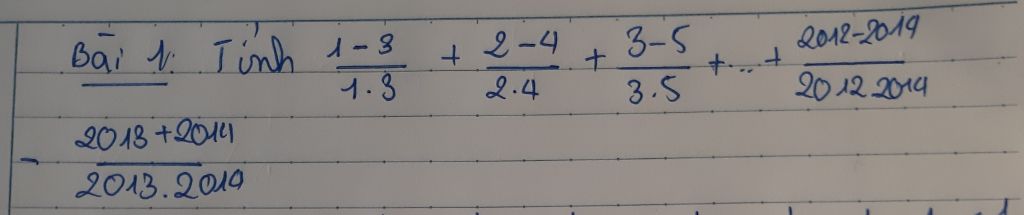 Bài 1: Tính \frac{1-3}{1.3} + \frac{2-4}{2.4} + \frac{3-5}{3.5} + ... + \frac{2012-2014}{2012 2014}
- \frac{2013+2014}{2013.2014}